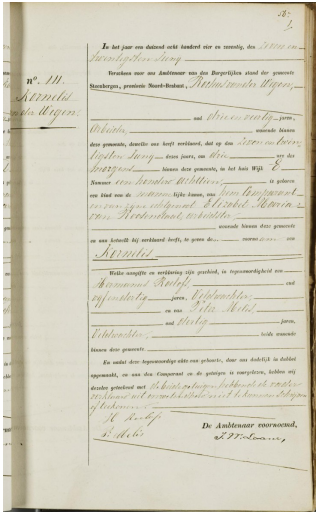 567
N° 111
Kornelis
van der Wegen
In het jaar een duizend acht honderd vier en zeventig, den zeven en
twintigsten Juny
Verscheen voor ons Ambtenaar van den Burgerlijken stand der gemeente
Steenbergen, provincie Noord-Braband, Rochus van der Wegen,
oud drie en veertig jaren,
arbeider, wonende binnen
deze gemeente, dewelke ons heeft verklaard, dat op den zeven en twin
tigsten Juny dezes jaars, om drie ure des
morgens binnen deze gemeente, in het huis Wijk E
Nummer een honderd achttien, is geboren
een kind van de kunne, van hem Comparant
en van zijne echtgenoot Elizabet Maria
van Roosendaal, arbeidster,
wonende binnen deze gemeente
en aan hetwelk hij verklaard heeft, te geven de voornaam van
Kornelis
Welke aangifte en verklaring zijn geschied, in tegenwoordigheid van
Hermanus Roelofs, oud
jaren, Veldwachter,
en van Peter Melis,
oud jaren,
Veldwachter, beide wonende
binnen deze gemeente
En nadat deze tegenwoordige akte van geboorte, door ons dadelijk in dubbel
opgemaakt, en aan den Comparant en de getuigen is voorgelezen, hebben wij
dezelve geteekend met de beide getuigen hebbende de vader
verklaard niet te kunnen schrijven
of teekenen
H. Roelofs
P. Melis
De Ambtenaar voornoemd,